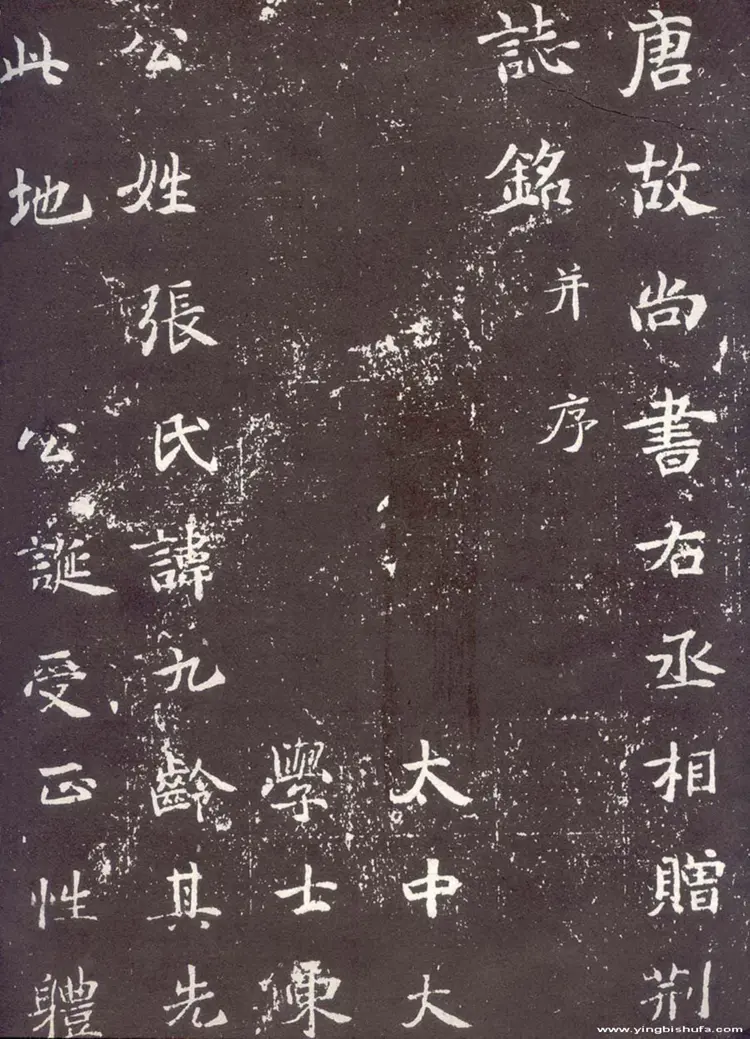 唐故尚書右丞相贈荆
誌銘并序
太中大
學士東
公姓張氏諱九齡其先
此地 公誕受正性軆
www.yingbishufa.com